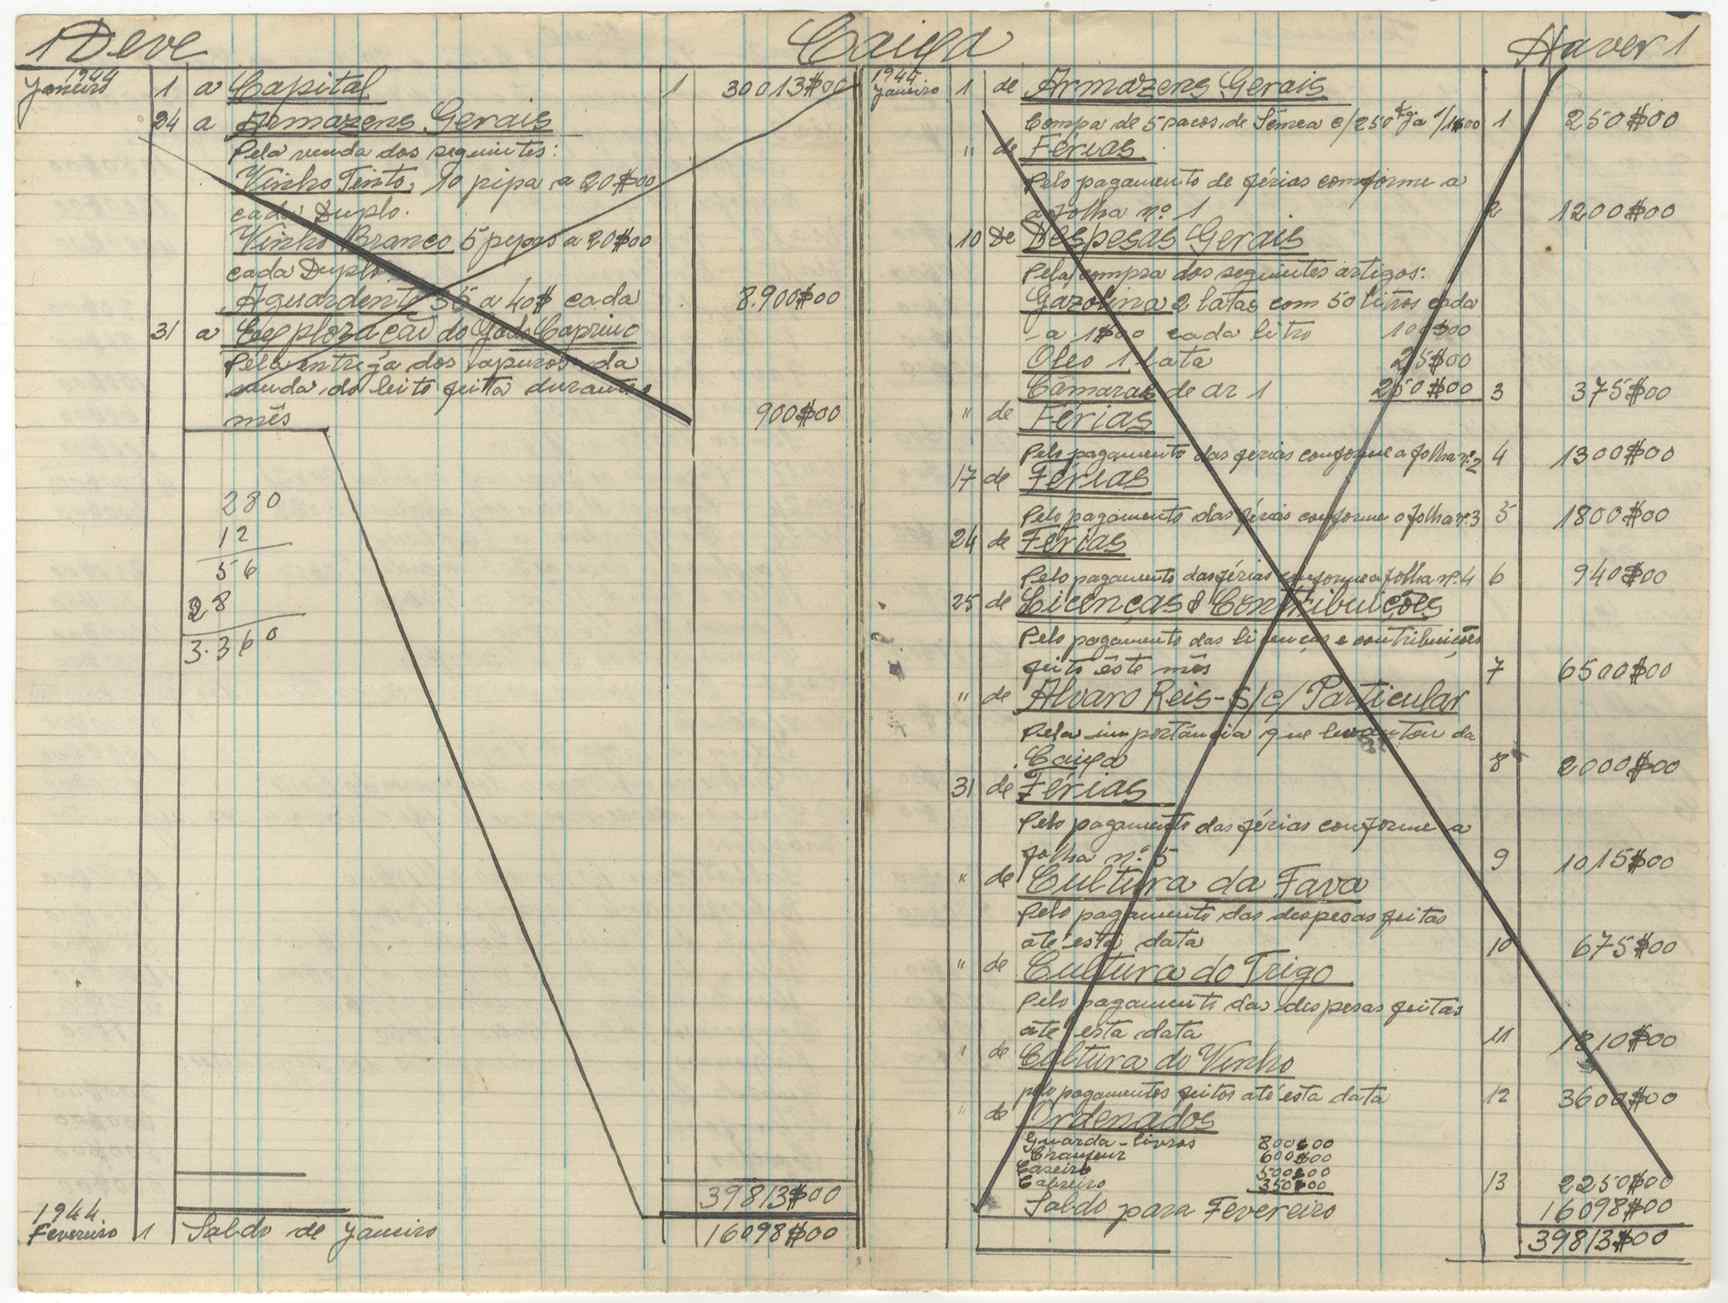 1 Deve
Caixa
Haver 1
1944
Janeiro 1 a Capital 1 30013$00
24 a Armazens Gerais
Pela venda dos seguintes:
Vinho Tinto, 10 pipa a 20$00
cada Duplo.
Vinho Branco 5 pipas a 20$00
cada Duplo
Aguardente 35 a 40$ cada 8.900$00
31 a Exploração do Gado Caprino
Pela entrega dos apuros da
venda do leite feita durante
mês 900$00
280
12
56
28
3.360
39813$00
1944
Fevereiro 1 Saldo de Janeiro 16098$00
1944
Janeiro 1 de Armazens Gerais
Compa de 5 sacos de Sêmea c/250 1 250$00
" de Férias
Pelo pagamento de férias comforme a
a folha nº 1 2 1200$00
10 De Despesas Gerais
Pela compra dos seguintes artigos:
Gazolina 2 latas com 50 litros cada
a 1$00 cada litro 100$00
Oleo 1 lata 25$00
Camaras de ar 1 250$00 3 375$00
" de Férias
Pelo pagamento das férias conforme a folha nº 2 4 1300$00
17 de Férias
Pelo pagamento das férias conforme a folha nº 3 5 1800$00
24 de Férias
Pelo pagamento das férias conforme a folha nº 4 6 940$00
25 de Licenças & Contribuições
Pelo pagamento das licenças e contribuições
feito êste mês 7 6500$00
" de Alvaro Reis - S/c/ Particular
Pela importância que levantou da
Caixa 8 2000$00
31 de Férias
Pelo pagamento das férias conforme a
folha nº 5 9 1015$00
" de Cultura da Fava
Pelo pagamento das despesas feitas
até esta data 10 675$00
" de Cultura do Trigo
Pelo pagamento das despesas feitas
até esta data 11 1810$00
" de Cultura do Vinho
pelo pagamentos feitos até esta data 12 3600$00
" de Ordenados
Guarda-livros 800$00
Chaufeur 600$00
Caseiro 500$00
Cabreiro 350$00 13 2250$00
Saldo para Fevereiro 16098$00
39813$00